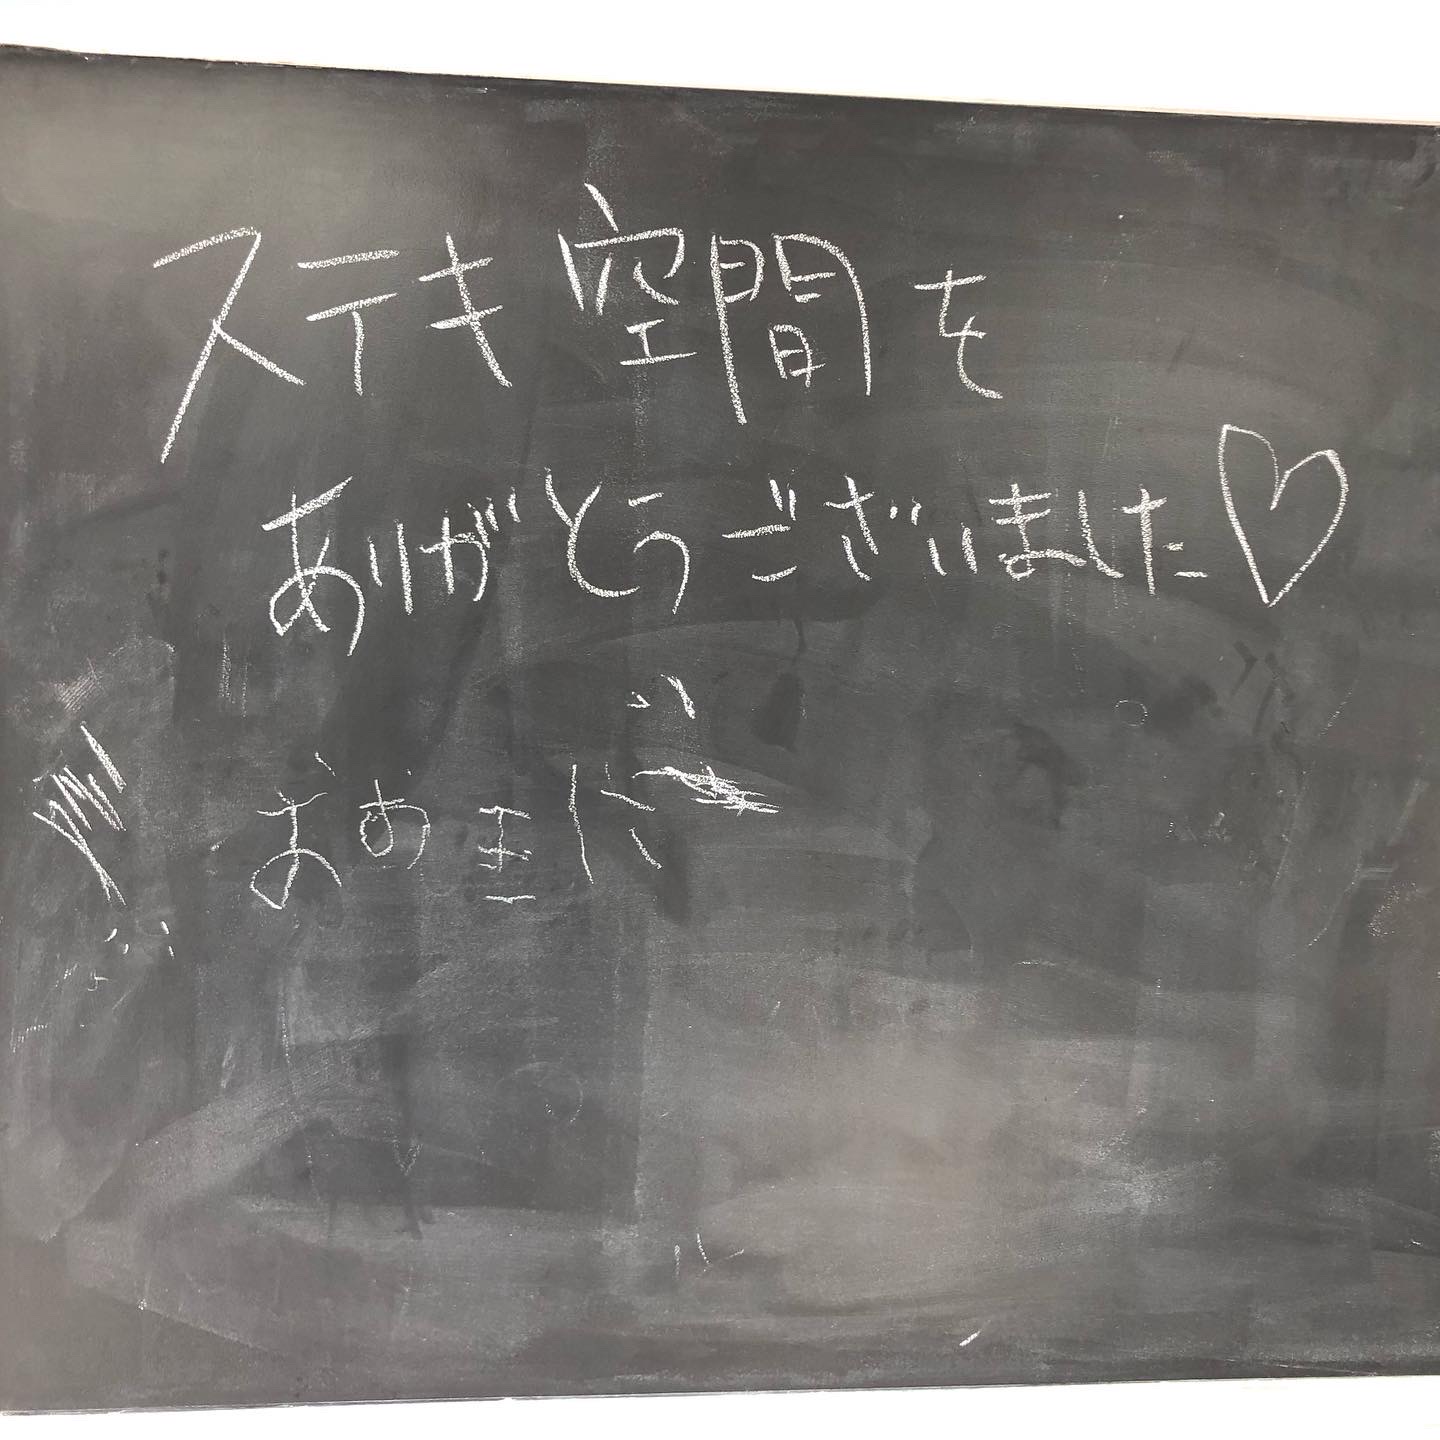 ステキ空間を
ありがとうございました♡